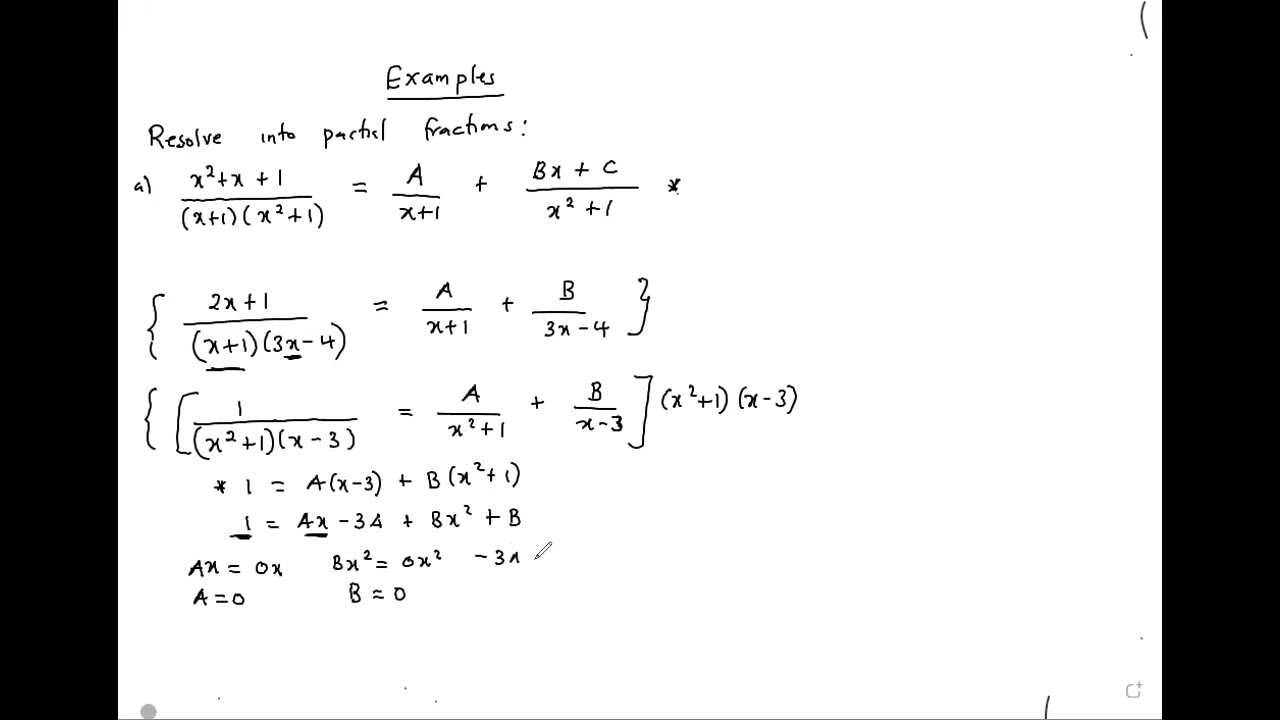 Examples
Resolve into partial fractions:
a) x²+x+1/(x+1)(x²+1) = A/x+1 + Bx+C/x²+1 *
{ 2x+1/(x+1)(3x-4) = A/x+1 + B/3x-4 }
{ [ 1/(x²+1)(x-3) = A/x²+1 + B/x-3 ] (x²+1)(x-3)
* 1 = A(x-3) + B(x²+1)
1 = Ax - 3A + Bx² + B
Ax = 0x Bx² = 0x² -3
A=0 B=0